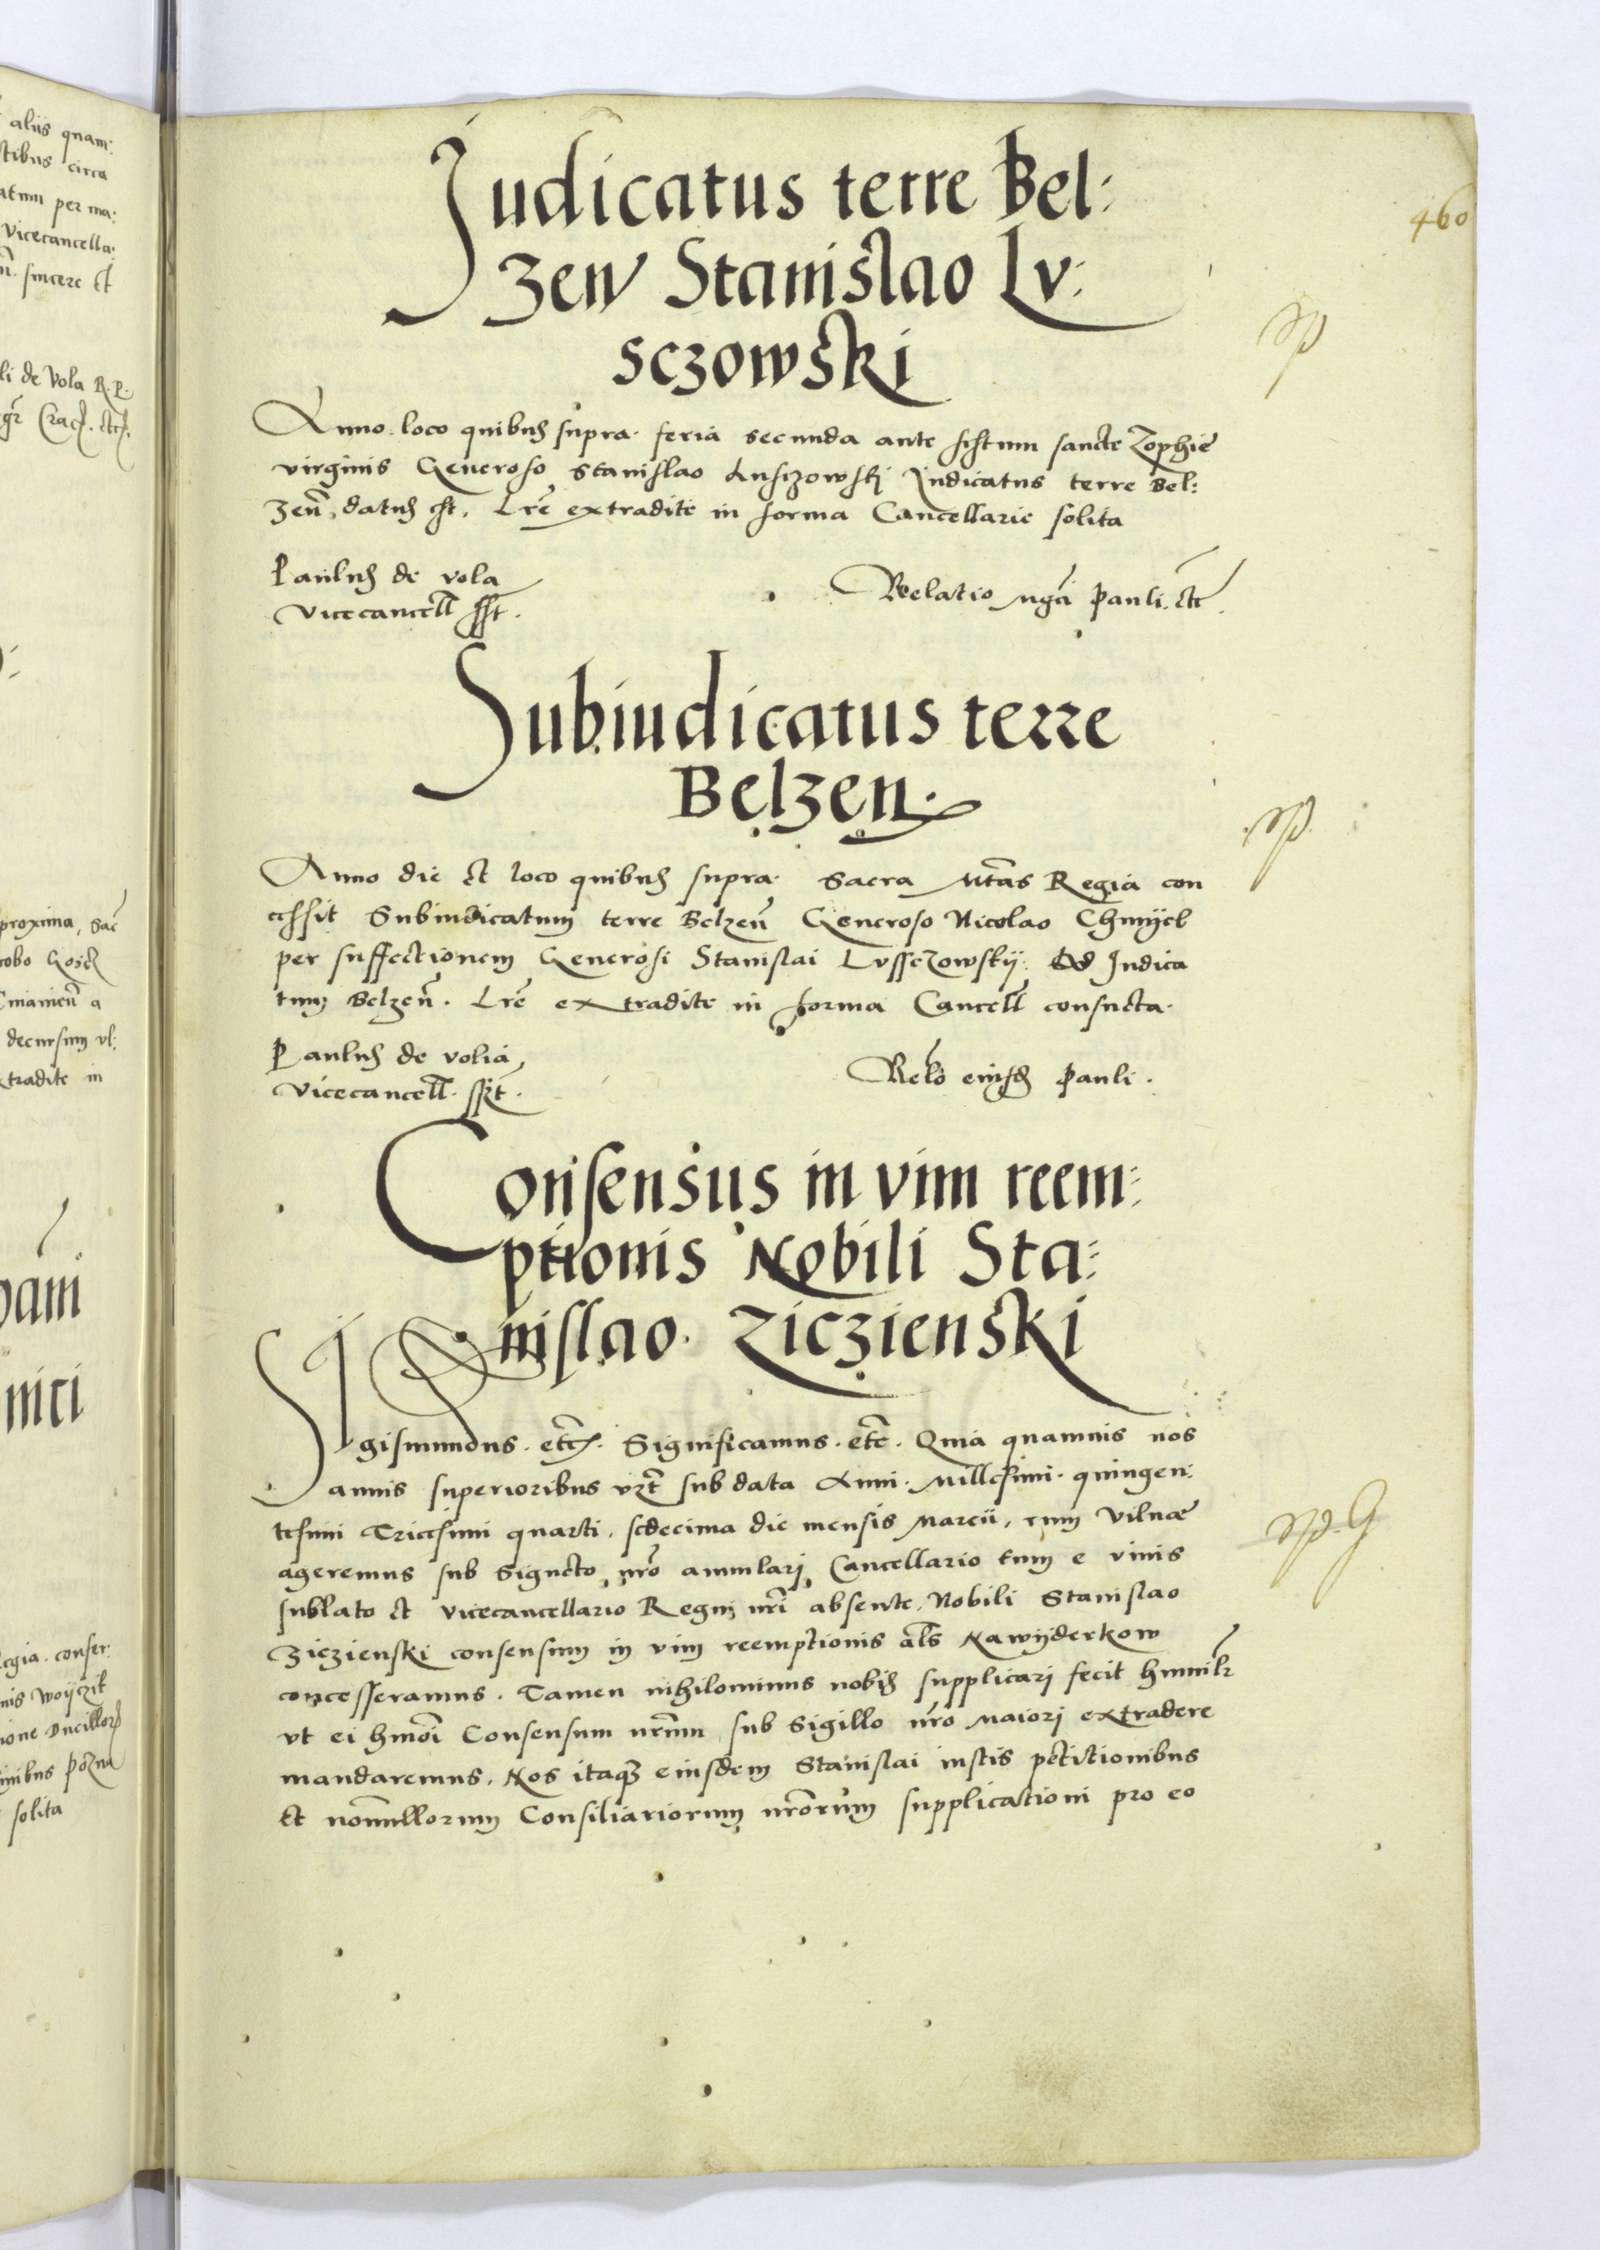 460
Judicatus terre Bel:
zen Stanislao Lv:
sczowski
Anno loco quibus supra feria secunda ante festum sancte Zophie
virginis Generoso Stanislao Lusczowskj Judicatus terre Bel:
zeñ, datus est. Lrẽ extradite in forma Cancellarie solita
Paulus de vola
vicecancell sst.
Relatio mgci Pauli. etc.
Subiudicatus terre
Belzen.
Anno die et loco quibus supra. Sacra Mtas Regia con
cessit Subiudicatum terre Belzeñ Generoso Nicolao Chmijel
per suffectionem Generosi Stanislai Lvssczowskij. Ad Judica
tum Belzeñ. Lrẽ extradite in forma Cancell consueta.
Paulus de volia
vicecancell. sst.
Relõ eiusd Pauli.
Consensus in vim reem:
ptionis Nobili Sta:
nislao. Ziczienski
SIgismundus. etc. Significamus. etc. Quia quamuis nos
annis superioribus vzt sub data Anni. Millesimi. quingen:
tesimi Tricesimi quarti. sedecima die mensis Marcii, cum Vilnae
ageremus sub Signeto nrõ annularj Cancellario tum e viuis
sublato et vicecancellario Regnj nrĩ absente. Nobili Stanislao
Ziczienski consensum in vim reemptionis als Nawyderkow
concesseramus. Tamen nihilominus nobis supplicari fecit humilr
vt ei hmõi Consensum nrmm sub Sigillo nrõ Maiorj extradere
mandaremus. Nos itaqz eiusdem Stanislai iustis petitionibus
et nonnullorum Consiliariorum nrõrum supplicationi pro eo